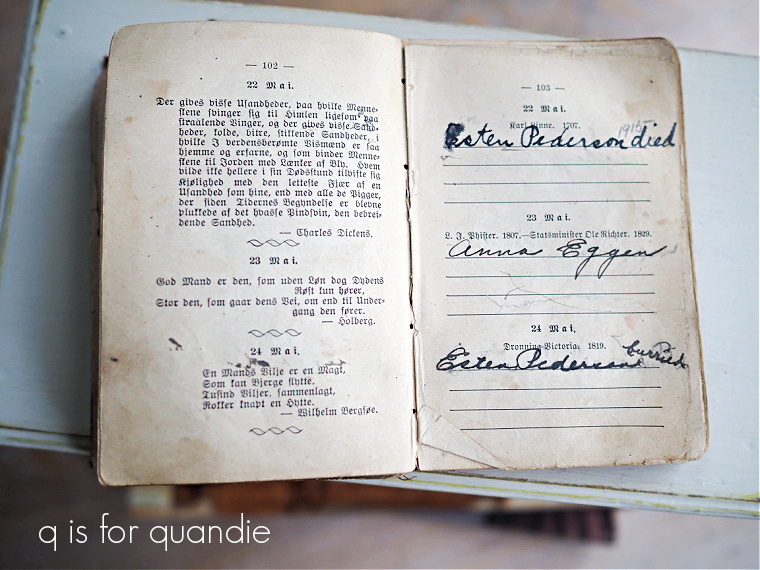 — 102 —
22 Mai.
Der gives visse Usandheder, paa hvilke Menne-
skene svinger sig til Himlen ligesom paa
straalende Vinger, og der gives visse Sand-
heder, kolde, bitre, stikkende Sandheder, i
hvilke J verdensberømte Vismænd er saa
hjemme og erfarne, og som binder Menne-
skene til Jorden med Lænker af Bly. Hvem
vilde ikke hellere i sin Dødsstund tilvifte sig
Kjølighed med den letteste Fjær af en
Usandhed som hine, end med alle de Pigger,
der siden Tidernes Begyndelse er blevne
plukkede af det hvasse Pindsvin, den bebrei-
dende Sandhed.
— Charles Dickens.
23 Mai.
God Mand er den, som uden Løn dog Dydens
Røst kun hører,
Stor den, som gaar dens Vei, om end til Under-
gang den fører.
— Holberg.
24 Mai.
En Mands Vilje er en Magt,
Som kan Bjerge flytte.
Tusind Viljer, sammenlagt,
Rokker knapt en Hytte.
— Wilhelm Bergsøe.
— 103 —
22 Mai.
Karl Linne. 1707.
1915
Esten Pederson died
23 Mai.
L. J. Phister. 1807.—Statsminister Ole Richter. 1829.
Anna Eggen
24 Mai.
Dronning Victoria. 1819.
Esten Pederson burried
q is for quandie